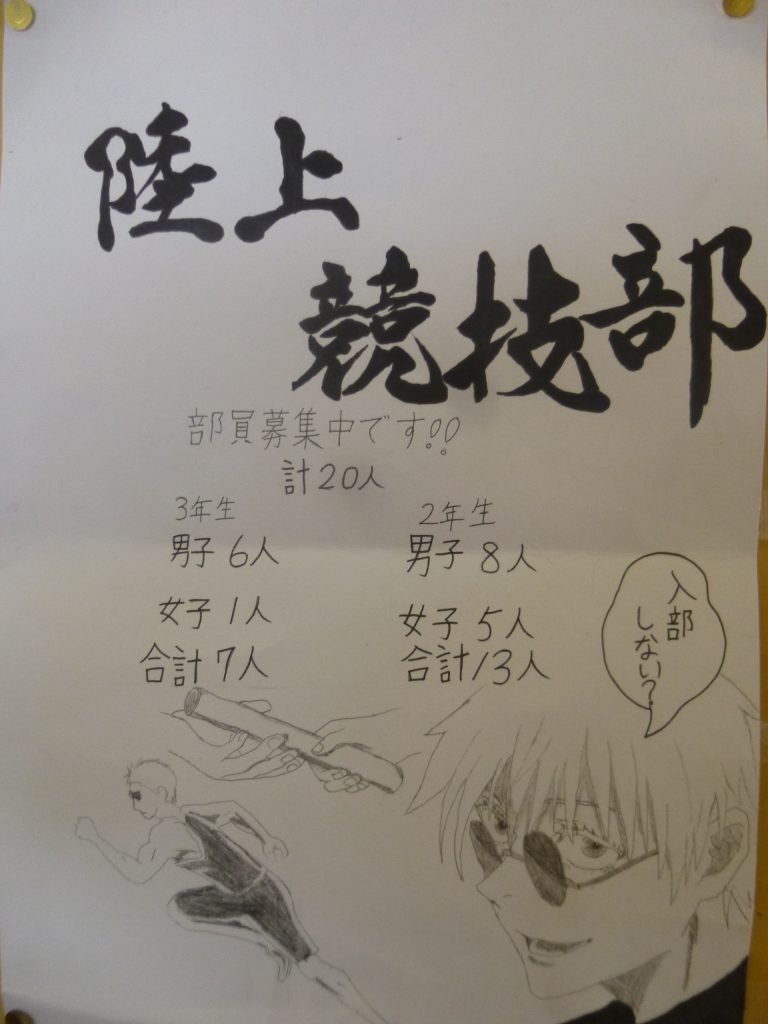 陸上
競技部
部員募集中です!!
計20人
3年生
男子 6人
女子 1人
合計 7人
2年生
男子 8人
女子 5人
合計 13人
入部
しない?